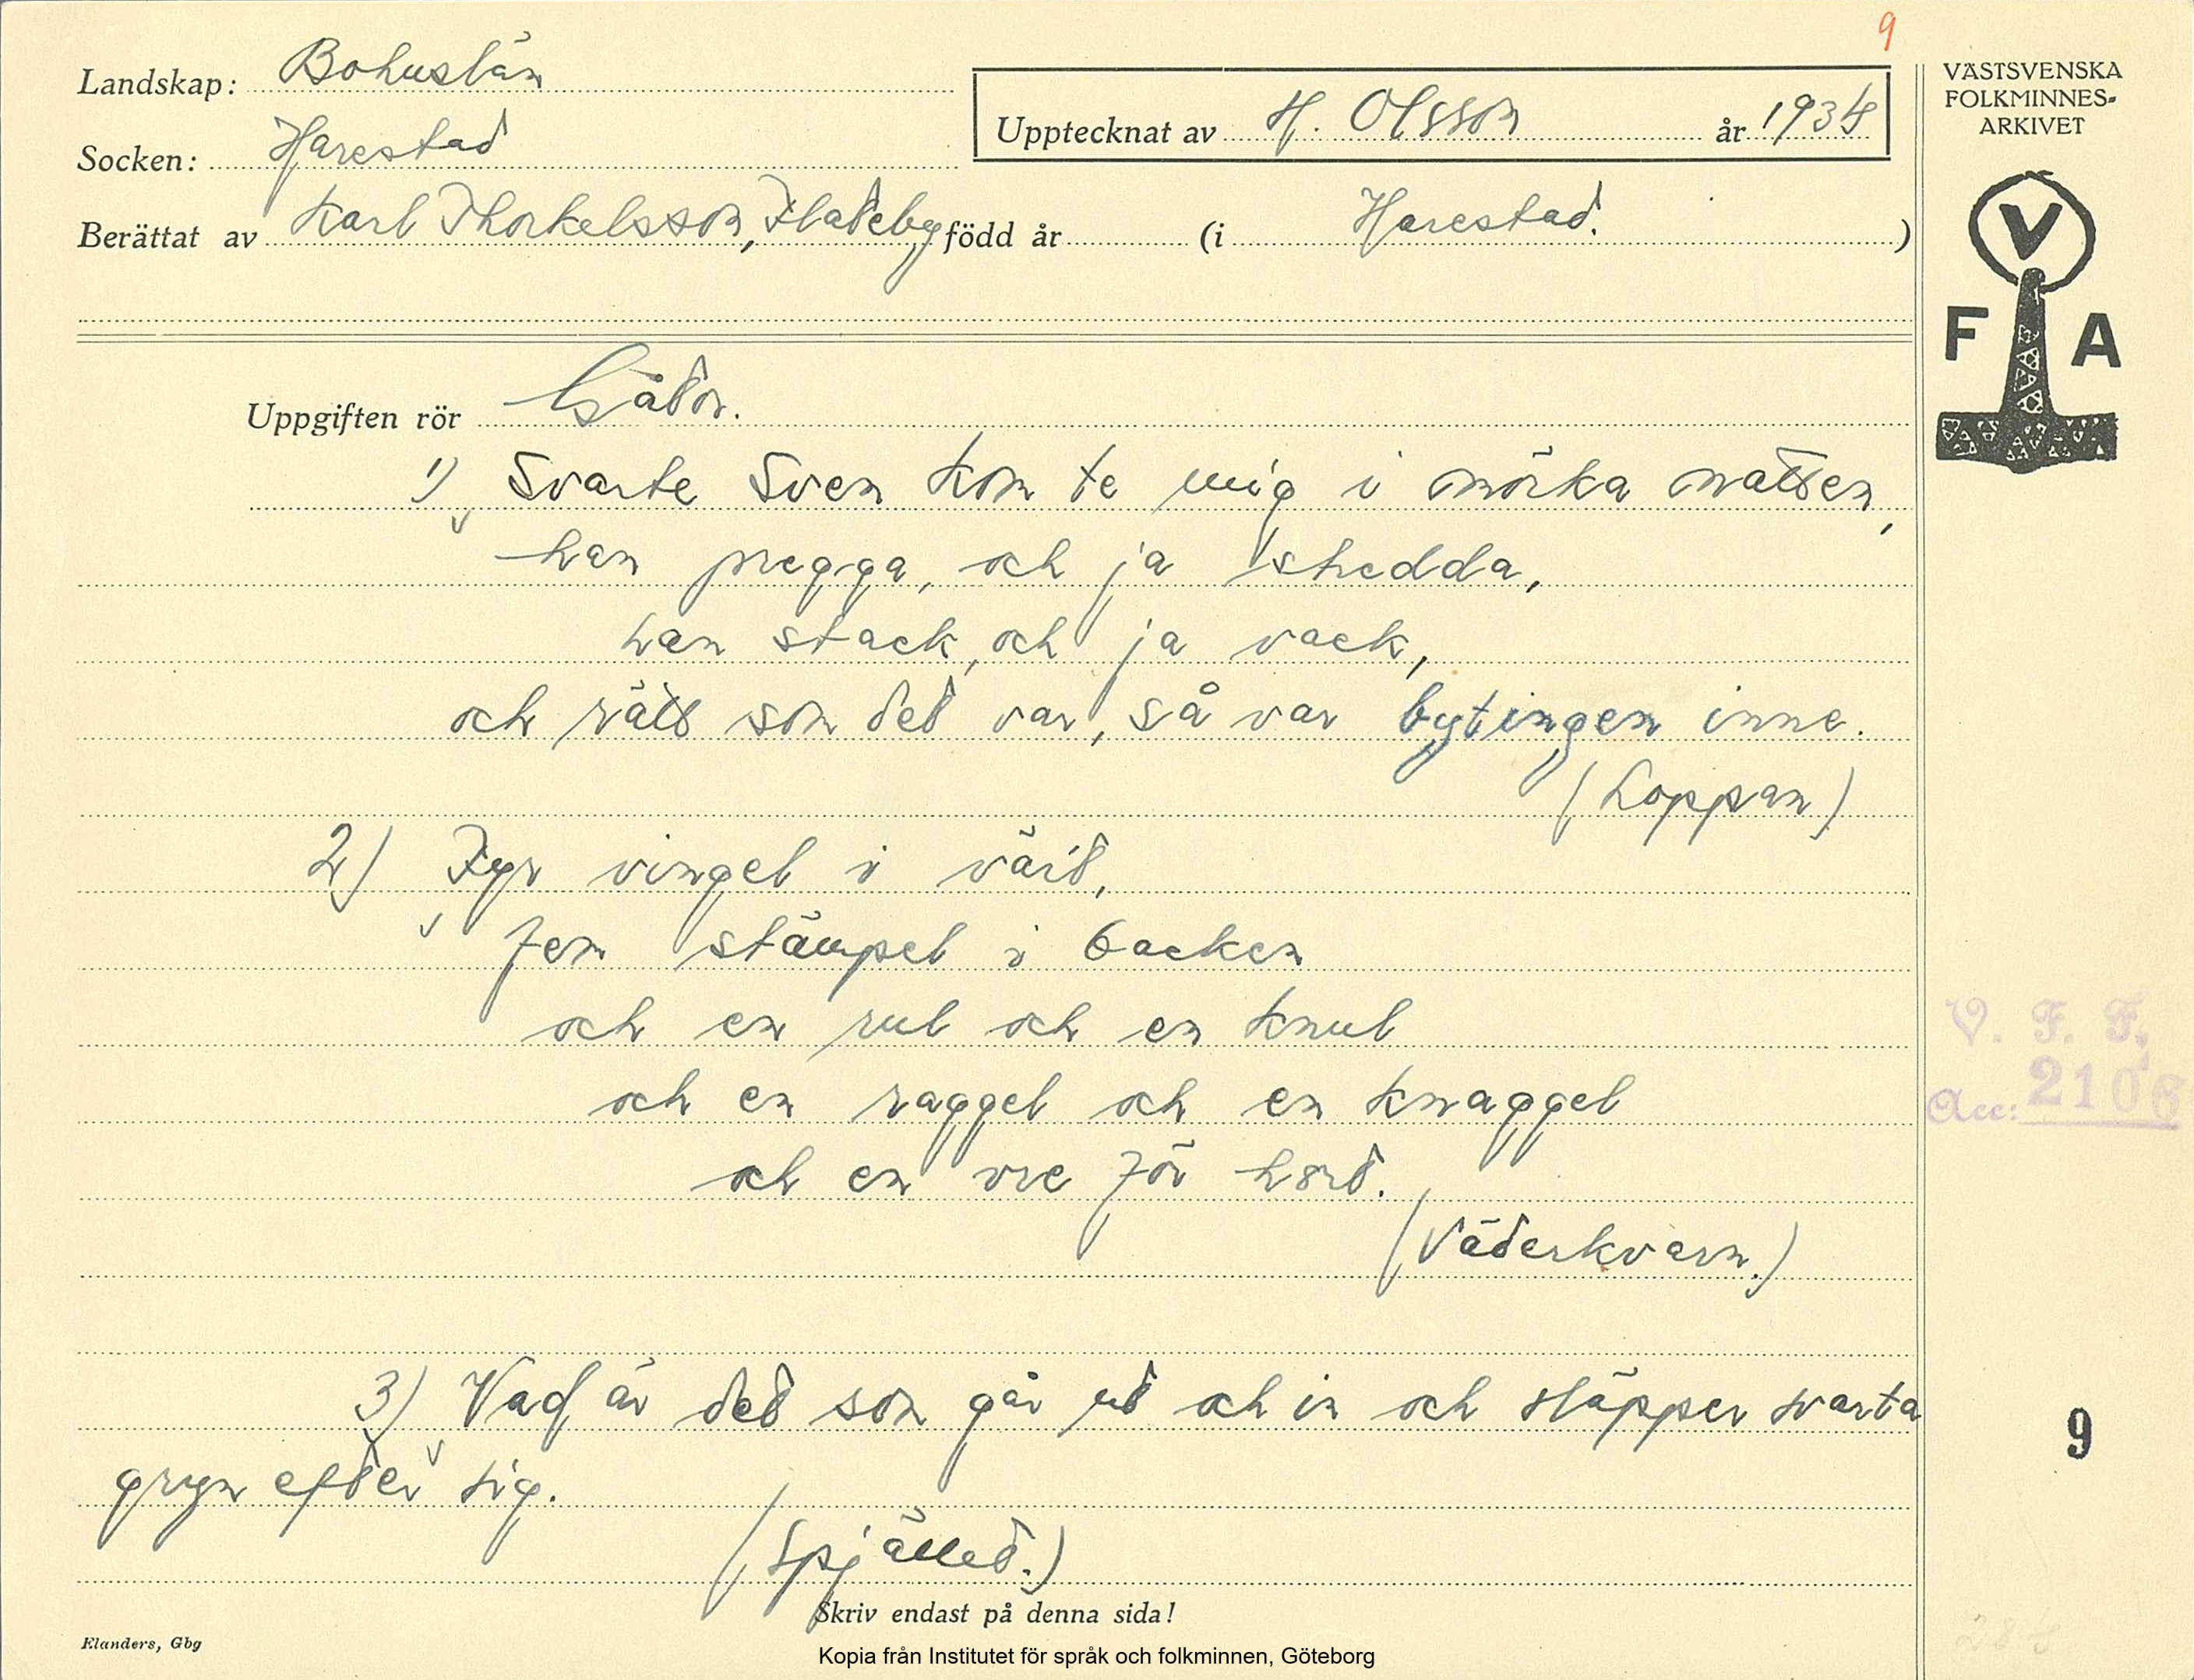 9
Landskap: Bohuslän
Socken: Harestad
Upptecknat av H. Olsson år 1934
Berättat av Karl Thorkelsson, Flateby född år (i Harestad.)
VÄSTSVENSKA
FOLKMINNES-
ARKIVET
V
F A
Uppgiften rör Gåtor.
1) Svarte Sven kom te mig i mörka natten,
han pregga, och ja skedda,
han stack, och ja vack,
och rätt som det var, så var bytingen inne.
(Loppan)
2) Fyr vingel i värt,
fem stämpel i backen
och en rul och en knul
och en raggel och en knaggel
och en vre för hort.
(Väderkvarn.)
3) Vad är det som går ut och in och släpper svarta
gryn efter sig.
(Spjället.)
V. F. F.
Acc: 2106
9
Skriv endast på denna sida!
Elanders, Gbg
Kopia från Institutet för språk och folkminnen, Göteborg